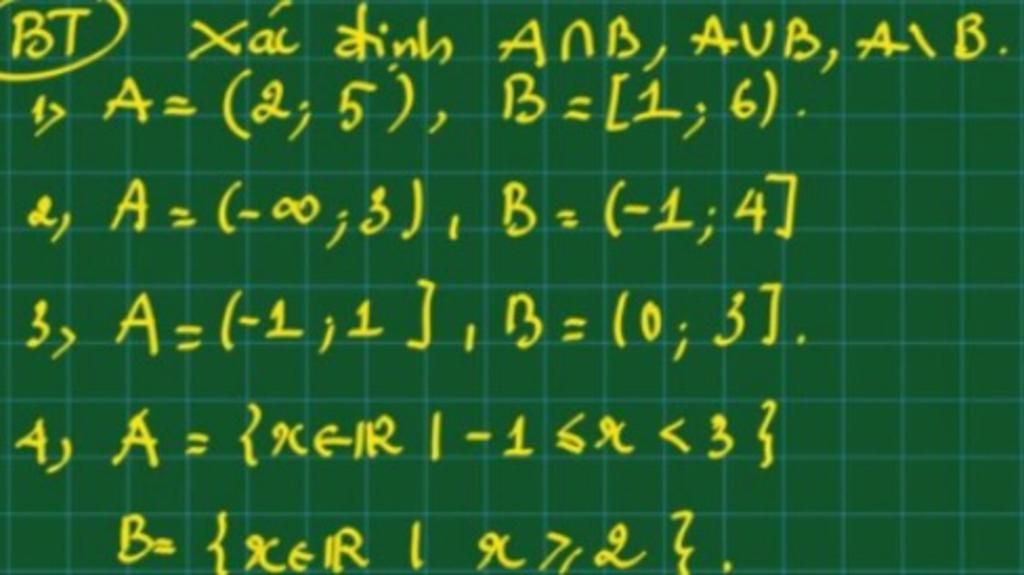 BT Xác định A∩B, A∪B, A\B.
1, A = (2; 5), B = [1; 6).
2, A = (-∞; 3), B = (-1; 4]
3, A = (-1; 1], B = (0; 3].
4, A = {x∈ℝ | -1 ⩽ x < 3}
B = {x∈ℝ | x ⩾ 2}.